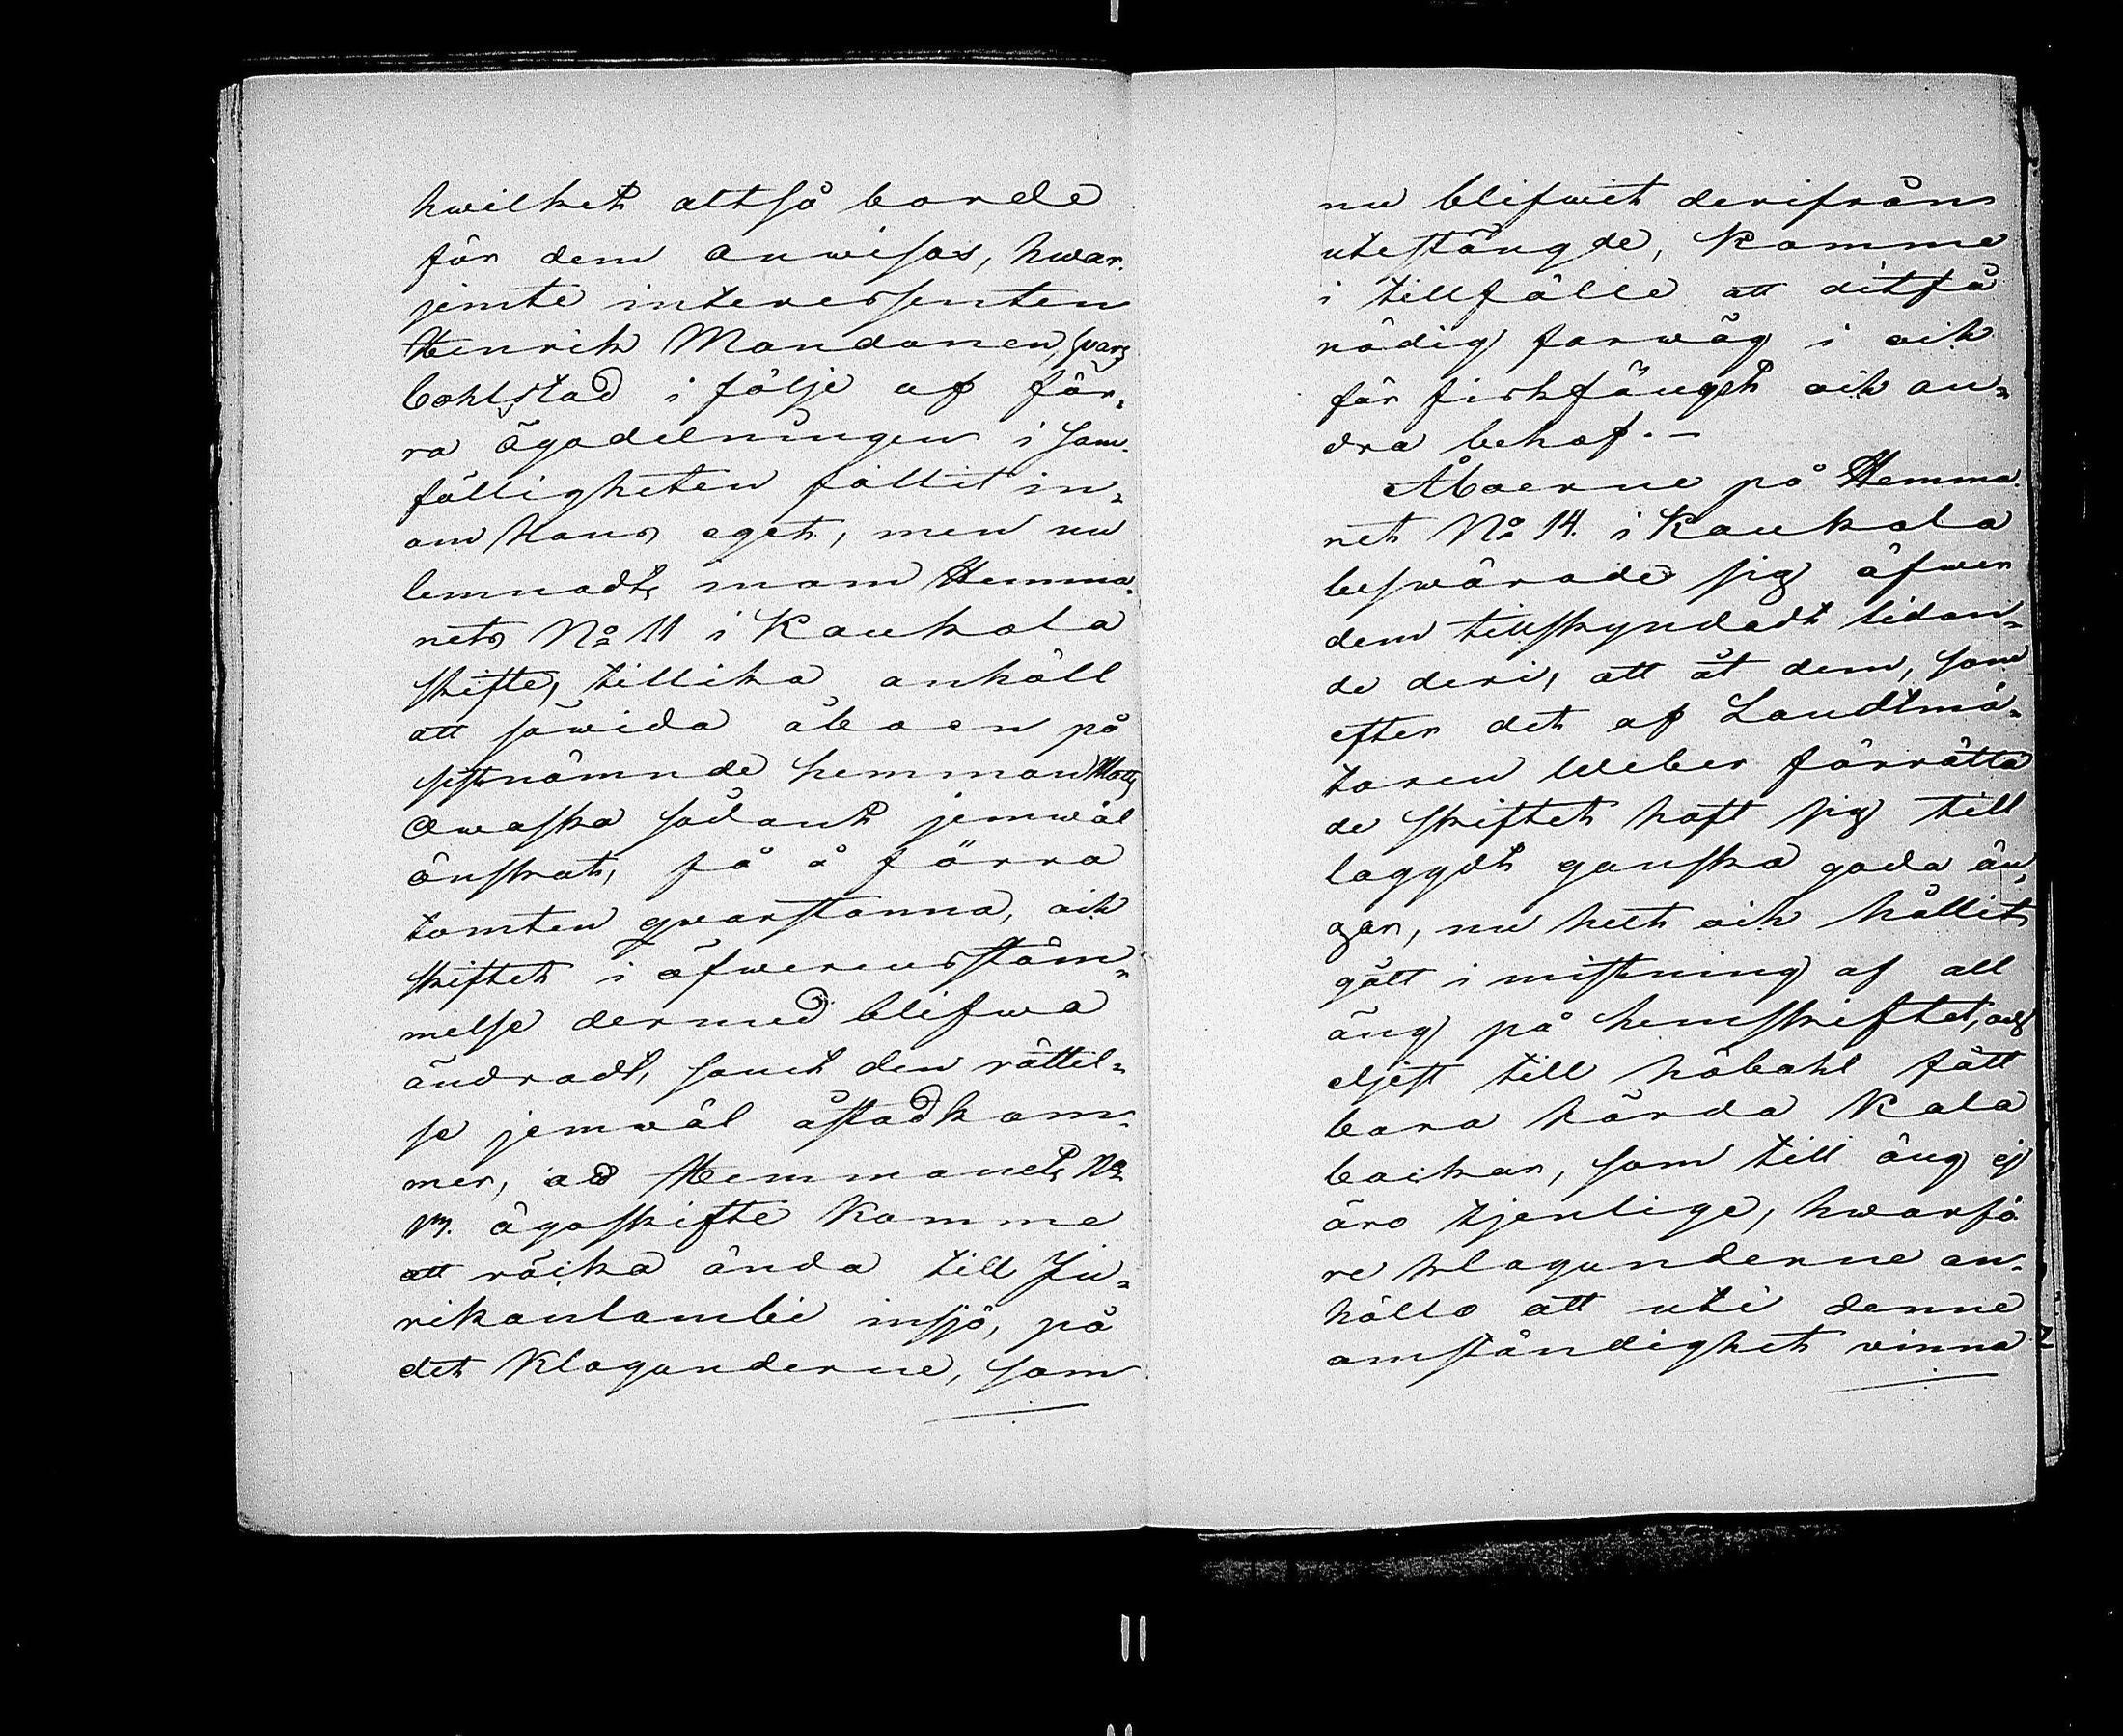 hwilket altså borde
för dem anwisas, hwar-
jemte interessenten
Henrik Mondonen, hvars
bohlstad i följe af för-
ra ägodelningen i sam-
fälligheten fallit in-
om hans eget, men nu
lemnadt inom Hemma-
nets No 11 i Kaukola
skifte, tillika anhöll
att såwida åboen på
sistnämnde hemman Matts
Awaska sådant jemwäl
önskat, få å förra
tomten qwarstanna, och
skiftet i öfwerensstäm-
melse dermed blifwa
ändradt, samt den rättel-
se jemwäl åstadkom-
mer, att Hemmanets No
14. ägoskifte komme
att räcka ända till Ju-
rikanlambi insjö, på
det Klaganderne, som
nu blifwit derifrån
utestängde, komme
i tillfälle att ditfå
nödig farwäg i och
för fiskfänget och an-
dra behof.-
Åboerne på Hemma-
net No 14. i Kaukola
beswärade sig öfwer
dem tillskyndadt lidan-
de deri, att åt dem, som
efter det af Landtmä-
taren Weber förrätta
de skiftet haft sig till
laggdt ganska goda än-
gar, nu helt och hållit
gått i mistning af all
äng på hemskiftet, och
eljest till höbohl fått
bara hårda Kala
backar, som till äng ej
äro tjenlige, hwarfö-
re klaganderne an-
höllo att uti denne
omständighet vinna